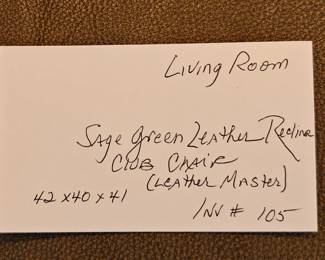 Living Room
Sage Green Leather Recline
Club Chair
(Leather Master)
42 x 40 x 41
Inv # 105